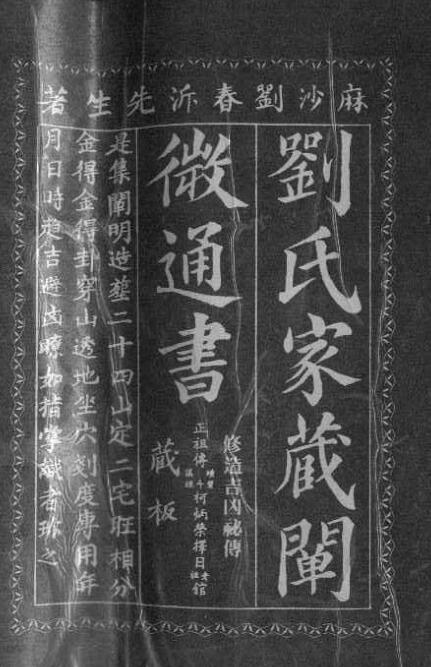 麻沙劉春沂先生著
劉氏家藏闡
微通書
修造吉凶祕傳
正祖傳
柯炳榮擇日館
藏板
是集闡明造塟二十四山定二宅旺相分
金得金得卦穿山透地坐穴刻度專用年
月日時趨吉避凶瞭如指掌識者珍之